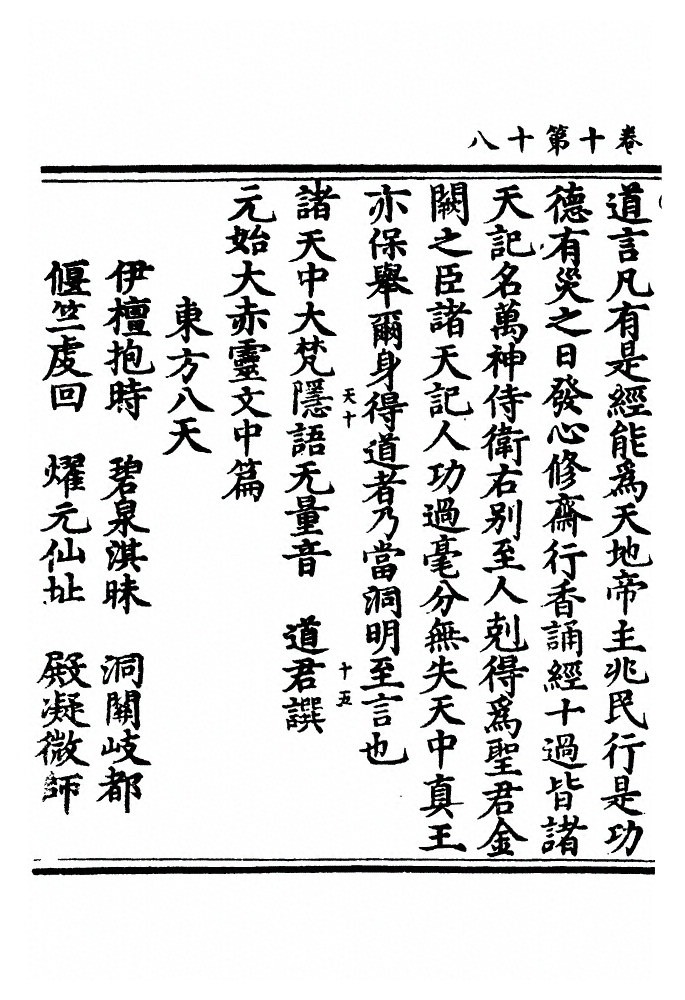 卷十第十八
道言凡有是經能爲天地帝主兆民行是功
德有災之日發心修齋行香誦經十過皆諸
天記名萬神侍衛右别至人剋得爲聖君金
闕之臣諸天記人功過毫分無失天中真王
亦保舉爾身得道者乃當洞明至言也
天十
十五
諸天中大梵隱語无量音 道君譔
元始大赤靈文中篇
東方八天
伊檀抱時 碧泉淇昧 洞關岐都
偃竺虔回 燿元仙址 殿凝微師